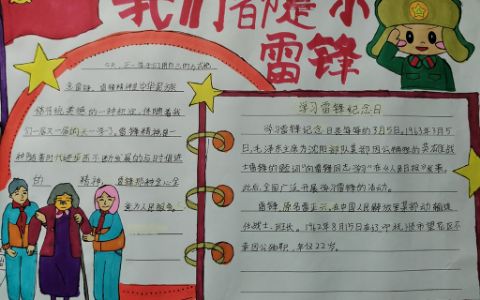 我们都是小
雷锋
志雷锋,雷锋精神是中华民族
传统美德的一种积淀,伴随着我
们一届又一届的人一学习。雷锋精神是一
种随着时代进步而不断发展的与时俱进
的精神,雷锋那种全心全
意为人民服务!
学习雷锋纪念日
学习雷锋纪念日是每年的3月5日。1963年3月5
日,毛泽东主席为沈阳部队某部因公殉职的英雄战
士雷锋的题词“向雷锋同志学习”在《人民日报》发表,
此后,全国广泛开展学习雷锋的活动。
雷锋,原名雷正兴,在中国人民解放军某部动输连
任战士,班长。1962年8月15日
区不
幸因公殉职,年仅22岁。